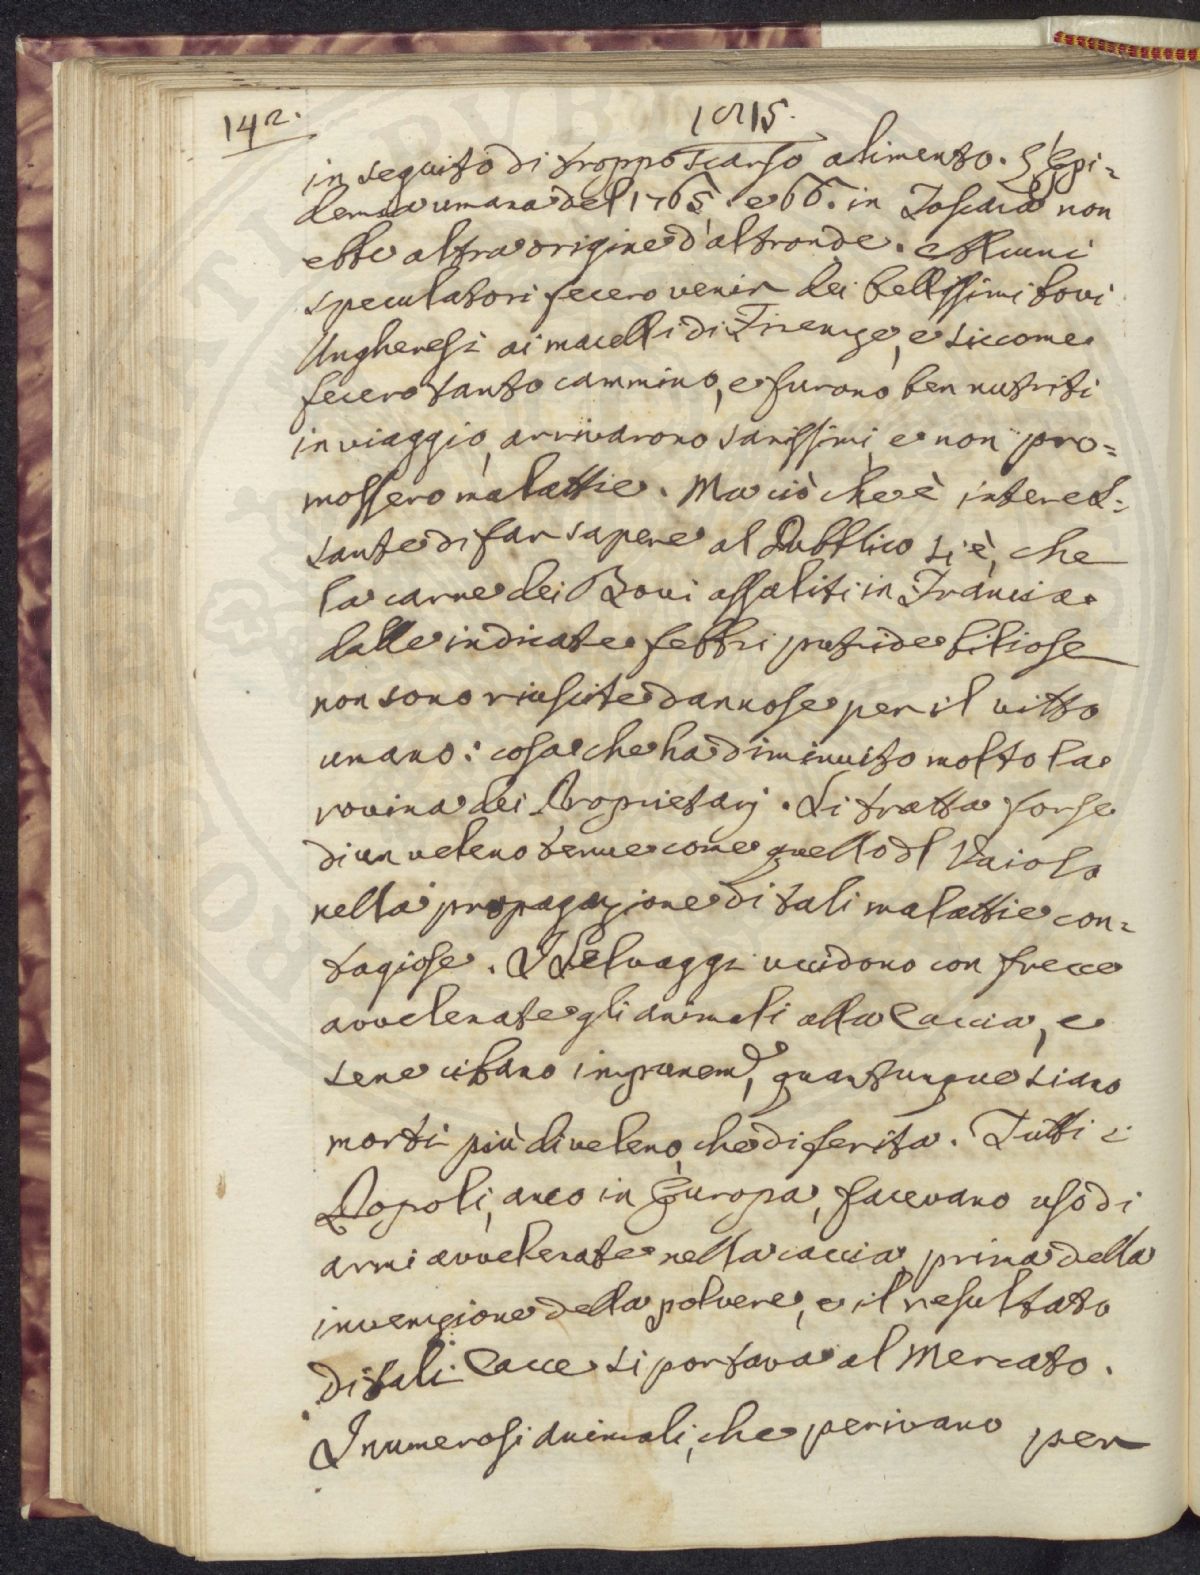 142.
1815.
in seguito di troppo scarso alimento. L'Epi=
demia umana del 1765. e 66. in Toscana non
ebbe altra origine d'altronde. Alcuni
speculatori fecero venir dei bellissimi bovi
Ungheresi ai macelli di Firenze, e siccome
fecero tanto cammino, e furono ben nutriti
in viaggio, arrivarono sanissimi, e non pro=
mossero malattie. Ma ciò che è interes=
sante di far sapere al Pubblico si è, che
la carne dei Bovi assaliti in Francia
dalle indicate febbri putride biliose
non sono riuscite dannose per il vitto
umano: cosa che ha diminuito molto la
rovina dei Proprietarj. Si tratta forse
di un veleno tenue come quello dl Vaiolo
nella propagazione di tali malattie con=
tagiose. I Selvaggi uccidono con frecce
avvelenate gli animali alla Caccia, e
se ne cibano impunem.e, quantunque siano
morti più di veleno, che di ferita. Tutti i
Popoli, anco in Europa, facevano uso di
armi avvelenate nella caccia prima della
invenzione della polvere, e il resultato
di tali Cacce si portava al Mercato.
I numerosi animali, che perivano per